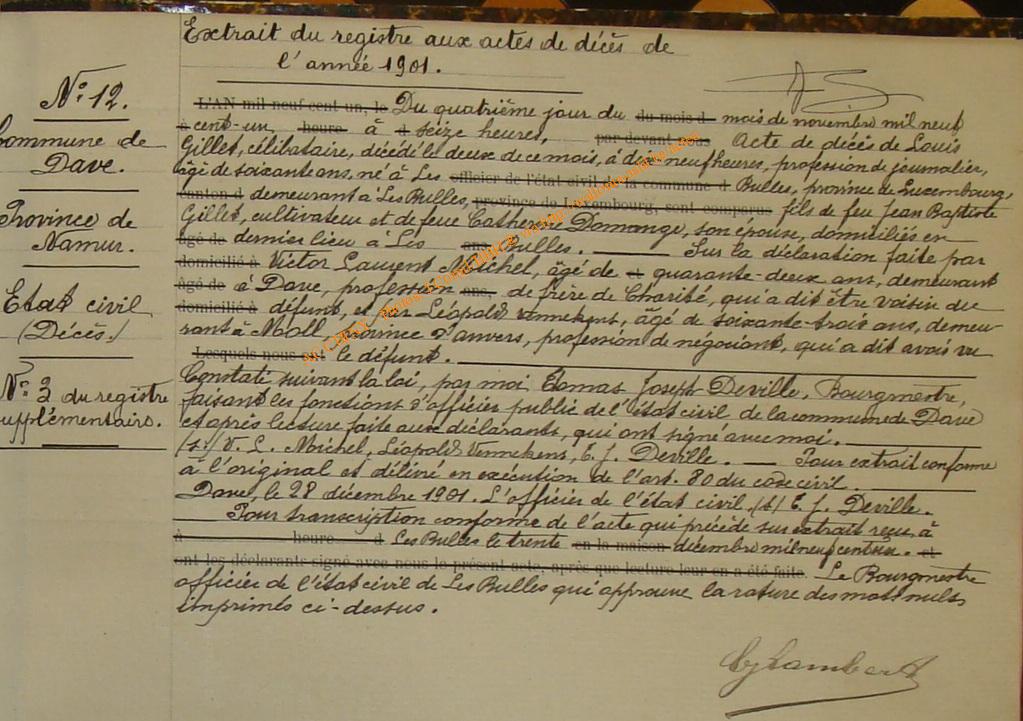 Extrait du registre aux actes de décès de
l'année 1901.
N° 12.
Commune de
Dave.
Province de
Namur.
Etat civil
(Décès.)
N° 3 du registre
supplémentaire.
L'AN mil neuf cent un, le Du quatrième jour du du mois d mois de novembre mil neuf
à cent-un, heure à d seize heures, par devant nous Acte de décès de Louis
Gillet, célibataire, décédé le deux de ce mois, à dix-neuf heures, profession de journalier,
âgé de soixante ans, né à Les officier de l'état civil de la commune d Bulles, province de Luxembourg,
canton d demeurant à Les Bulles, province de Luxembourg, sont comparus fils de feu Jean Baptiste
Gillet, cultivateur et de feue Catherine Domange, son épouse, domiciliés en
âgé de dernier lieu à Les ans, Bulles. Sur la déclaration faite par
domicilié à Victor Laurent Michel, âgé de et quarante-deux ans, demeurant
âgé de à Dave, profession ans, de frère de Charité, qui a dit être voisin du
domicilié à défunt, et par Léopold Vennekens, âgé de soixante-trois ans, demeu-
rant à Moll, province d'Anvers, profession de négociant, qui a dit avoir vu
Lesquels nous ont le défunt.
Constaté suivant la loi, par moi Joseph Deville, Bourgmestre,
faisant les fonctions d'officier public de l'état civil de la commune de Dave
et après lecture faite aux déclarants, qui ont signé avec moi.
(s.) V. L. Michel, Léopold Vennekens, E. J. Deville. Pour extrait conforme
à l'original et délivré en exécution de l'art. 80 du code civil.
Dave, le 28 décembre 1901. L'officier de l'état civil, (s) E. J. Deville.
Pour transcription conforme de l'acte qui précède sur extrait reçu, à
à heure d Les Bulles le trente en la maison décembre mil neuf cent un. et
ont les déclarants signé avec nous le présent acte, après que lecture leur en a été faite. Le Bourgmestre
officier de l'état civil de Les Bulles qui approuve la rature des mots nuls
imprimés ci-dessus.